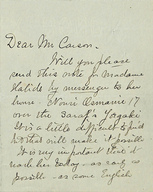 Dear Mr Carson.
Will you please
send this note to Madame
Halidé by messenger to her
house - Nouri Osmanié 17
over the Saraf's
It is a little difficult to find
but that will make it possible
It is very important
reach her today - as early as
possible - as some English